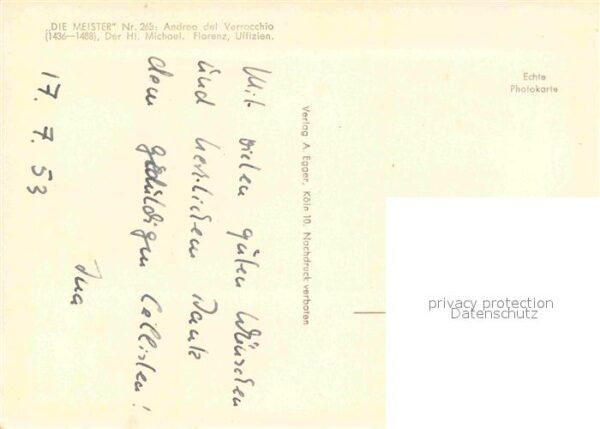 „DIE MEISTER" Nr. 263: Andrea del Verrocchio
(1436—1488), Der Hl. Michael. Florenz, Uffizien.
Echte
Photokarte
Verlag A. Egger, Köln 10. Nachdruck verboten
17. 7. 53
Mit vielen guten Wünschen
und herzlichem Dank
dem geduldigen Cellisten!
Ina
privacy protection
Datenschutz